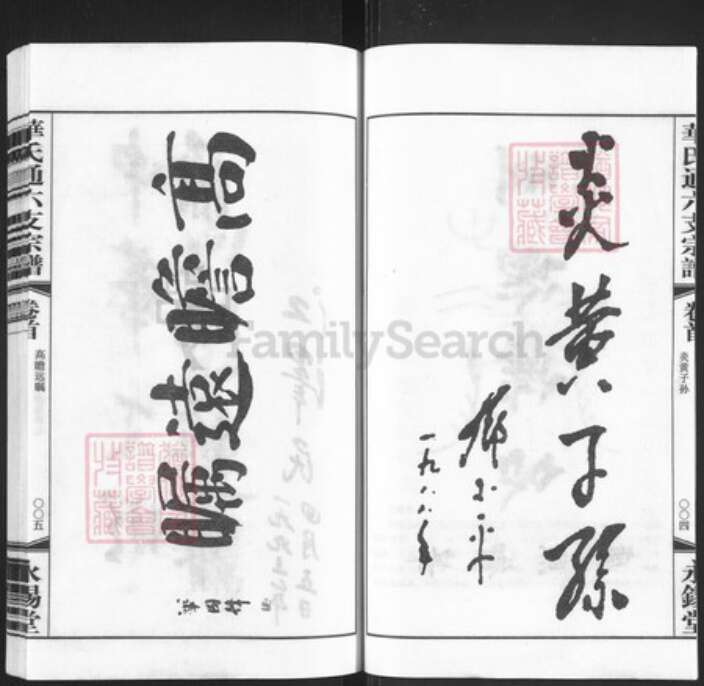 華氏通六支宗譜
卷首
炎黃子孙
〇〇四
永錫堂
炎黃子孫
鄧小平
一九八八年
FamilySearch
高瞻遠矚
華國鋒
華氏通六支宗譜
卷首
高瞻远瞩
〇〇五
永錫堂